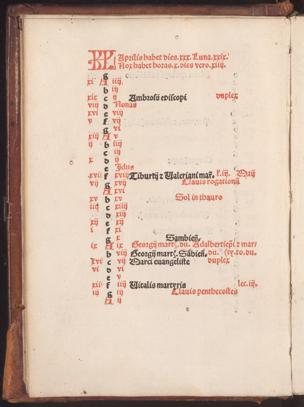 KL Aprilis habet dies. xxx. Luna. xxix.
Nox habet horas. x. dies vero. xiiij.
g
xi A iiij
b iij
xix c ij Ambrosij episcopi duplex
viij d Nonas
xvi e viij
v f vij
g vi
xiij A v
ij b iiij
c iij
x d ij
e Idus
xviij f xviij Tiburtij z Valeriani mar̄. l. iij. Maij
vij g xvij Clauis rogationū
A xvi
xv b xv Sol in thauro
iiij c xiiij
d xiij
xij e xij
i f xi
g x Sambien̄.
ix A ix Georgij mart̄. du. Adalberti ep̄i z mar̄
b viij Georgij mart̄.
xvij c vij Marci euangeliste duplex
vi d vi
e v
xiiij f iiij Vitalis martyris lec. iij.
iij g iij Clauis penthecostes
A ij